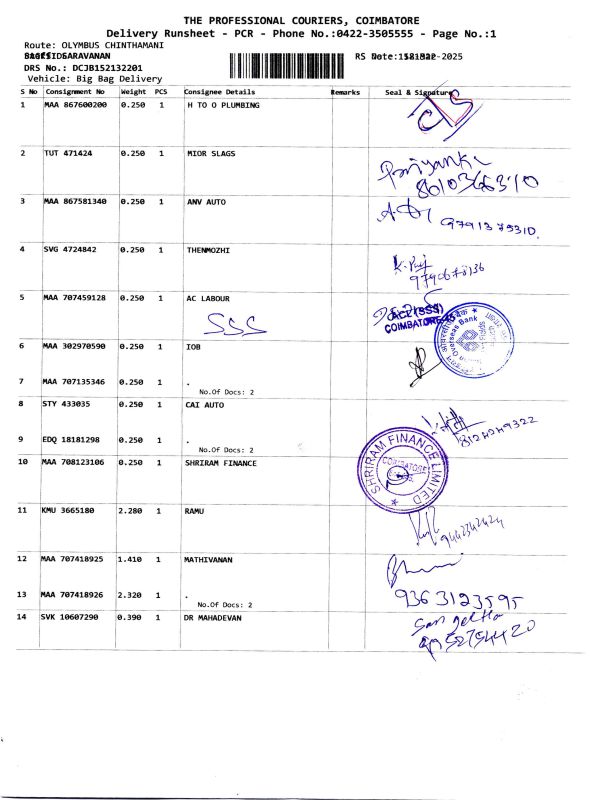 THE PROFESSIONAL COURIERS, COIMBATORE
Delivery Runsheet - PCR - Phone No.:0422-3505555 - Page No.:1
Route: OLYMBUS CHINTHAMANI
DRS No.: DCJB152132201
Vehicle: Big Bag Delivery
S No Consignment No Weight PCS Consignee Details Remarks Seal & Signature
1 MAA 867600200 0.250 1 H TO O PLUMBING
2 TUT 471424 0.250 1 MIOR SLAGS
Priyanka
8610366310
3 MAA 867581340 0.250 1 ANV AUTO
9791375310.
4 SVG 4724842 0.250 1 THENMOZHI
5 MAA 707459128 0.250 1 AC LABOUR
SSS
ACL (SSS)
COIMBATORE
6 MAA 302970590 0.250 1 IOB
Overseas Bank
7 MAA 707135346 0.250 1 .
No.Of Docs: 2
8 STY 433035 0.250 1 CAI AUTO
8124249322
9 EDQ 18181298 0.250 1 .
No.Of Docs: 2
10 MAA 708123106 0.250 1 SHRIRAM FINANCE
SHRIRAM FINANCE LIMITED
COIMBATORE
11 KMU 3665180 2.280 1 RAMU
12 MAA 707418925 1.410 1 MATHIVANAN
13 MAA 707418926 2.320 1 .
No.Of Docs: 2
9363123595
14 SVK 10607290 0.390 1 DR MAHADEVAN
Sangeetha